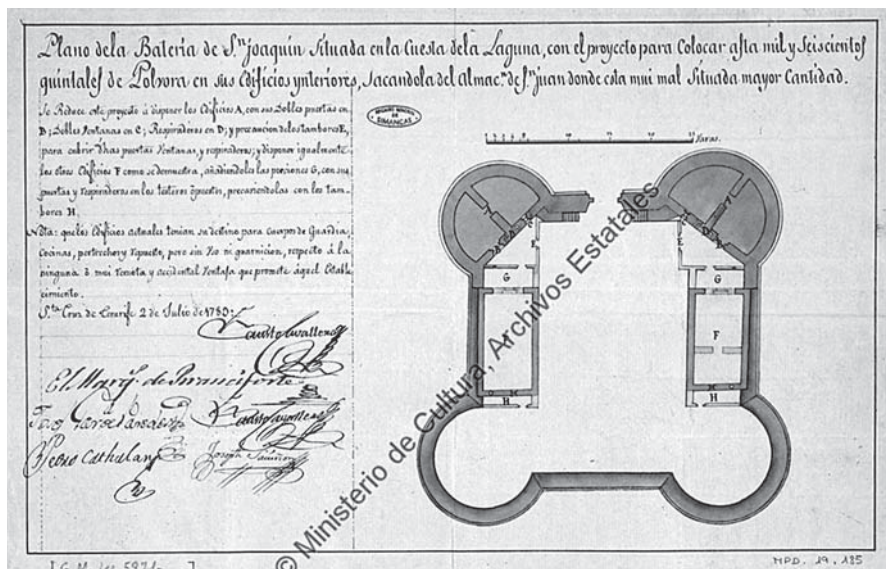 Plano dela Bateria de S.ⁿ Joaquin Situada en la Cuesta dela Laguna, con el proyecto para Colocar asta mil y Seiscientos
quintales de Polvora en sus Edificios ynteriores, Sacandola del Almac.ⁿ de S.ⁿ Juan donde esta mui mal Situada mayor Cantidad.
Se Reduce este proyecto à disponer los Edificios A, con sus dobles puertas en
B; dobles Ventanas en C; Respiraderos en D; y precaucion delos tambores E,
para cubrir dhas puertas Ventanas, y respiraderos; y disponer igualmente
los otros Edificios F como se demuestra, añadiendoles las porciones G, con sus
puertas y respiraderos en los testeros opuestos, precaviendolas con los tam-
bores H.
Nota: que los Edificios actuales tenian su destino para Cuerpos de Guardia,
Cocinas, pertrechos y repuesto, pero sin Uso ni guarnicion, respecto à la
ninguna ò mui remota y accidental Ventaja que promete aquel Estable
cimiento.
S.ᵗᵃ Cruz de Tenerife 2 de Julio de 1789
El Marq.ˢ de Branciforte
Fausto Cavallero
Pedro Cathalan
Joseph
ARCHIVO GENERAL
DE
SIMANCAS
Varas.
A
A
B
C
D
E
E
G
G
F
H
H
© Ministerio de Cultura, Archivos Estatales
MPD. 19, 125